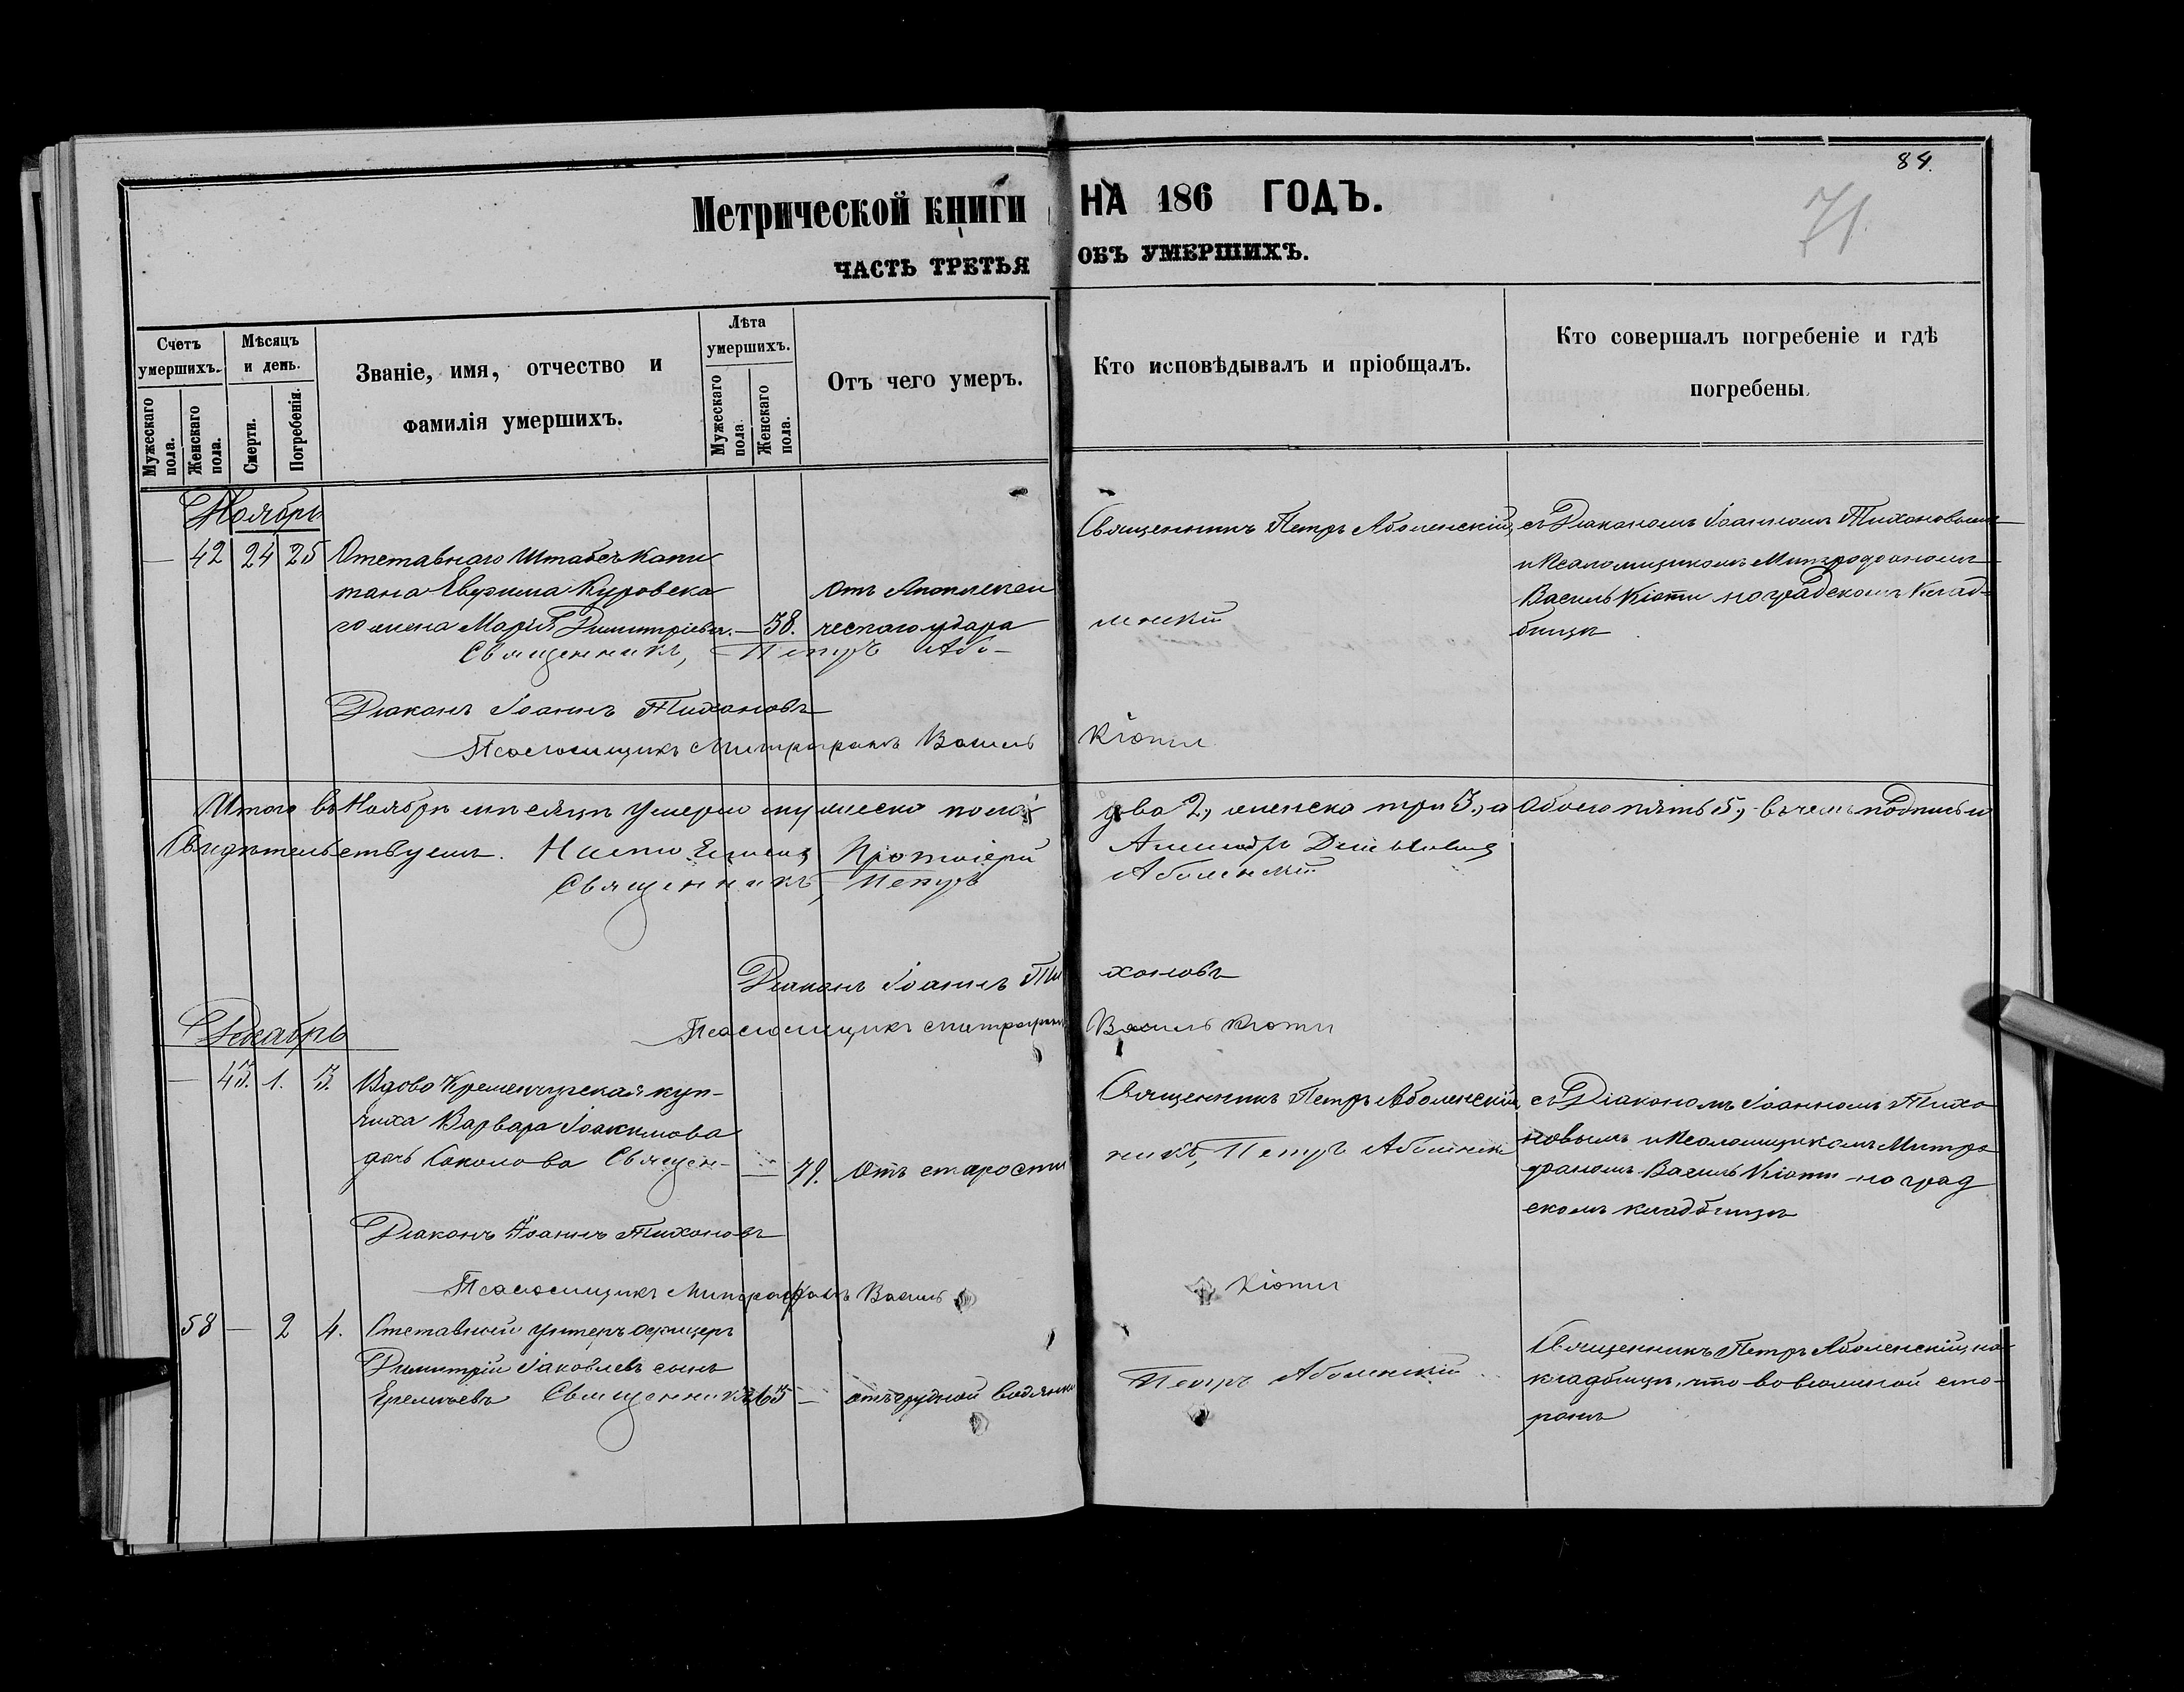 84.
71.
Метрической книги НА 186 ГОДЪ.
ЧАСТЬ ТРЕТЬЯ ОБЪ УМЕРШИХЪ.
Счетъ умершихъ.
Мужескаго пола.
Женскаго пола.
Мѣсяцъ и день.
Смерти.
Погребенія.
Званіе, имя, отчество и фамилія умершихъ.
Лѣта умершихъ.
Мужескаго пола.
Женскаго пола.
Отъ чего умеръ.
Кто исповѣдывалъ и пріобщалъ.
Кто совершалъ погребеніе и гдѣ погребены.
Ноябрь
— 42 24 25 Отставнаго Штабсъ Капи
тана Евфима Куровска
го жена Марія Димитріева. — 58.
отъ Апоплекси
ческаго удара
Священникъ Петръ Аболенскій,
съ Діакономъ Іоанномъ Тихоновымъ
и Псаломщикомъ Митрофаномъ
Василь Кіоти на градскомъ клад-
бищѣ
Священникъ, Петръ Або-
ленскій
Діаконъ Іоаннъ Тихановъ
Псаломщикъ Митрофанъ Василь Кіоти
Итого въ Ноябрѣ мѣсяцѣ умерло мужеска пола два 2, женска три 3, а обоего пять 5, въ чемъ подписью
Свидѣтельствуемъ. Протоіерей
Священникъ, Петръ Аболенскій
Діаконъ Іоаннъ Тихоновъ
Псаломщикъ Митрофанъ Василь Кіоти
Декабрь
— 43. 1. 3. Вдова Кременчугская куп-
чиха Варвара Іоакимова
дочь Соколова — 79. Отъ старости
Священникъ Петръ Аболенскій,
съ Діакономъ Іоанномъ Тихо
новымъ и Псаломщикомъ Митро
фаномъ Василь Кіоти на град
скомъ кладбищѣ
Священ-
никъ, Петръ Аболенск
Діаконъ Іоаннъ Тихоновъ
Псаломщикъ Митрофанъ Василь Кіоти
58 — 2 4. Отставной унтеръ офицеръ
Димитрій Іаковлевъ сынъ
65 — отъ грудной водянки
Священникъ Петръ Аболенскій, на
кладбищѣ, что во вольной сто-
ронѣ
Священникъ
Петръ Аболенскій